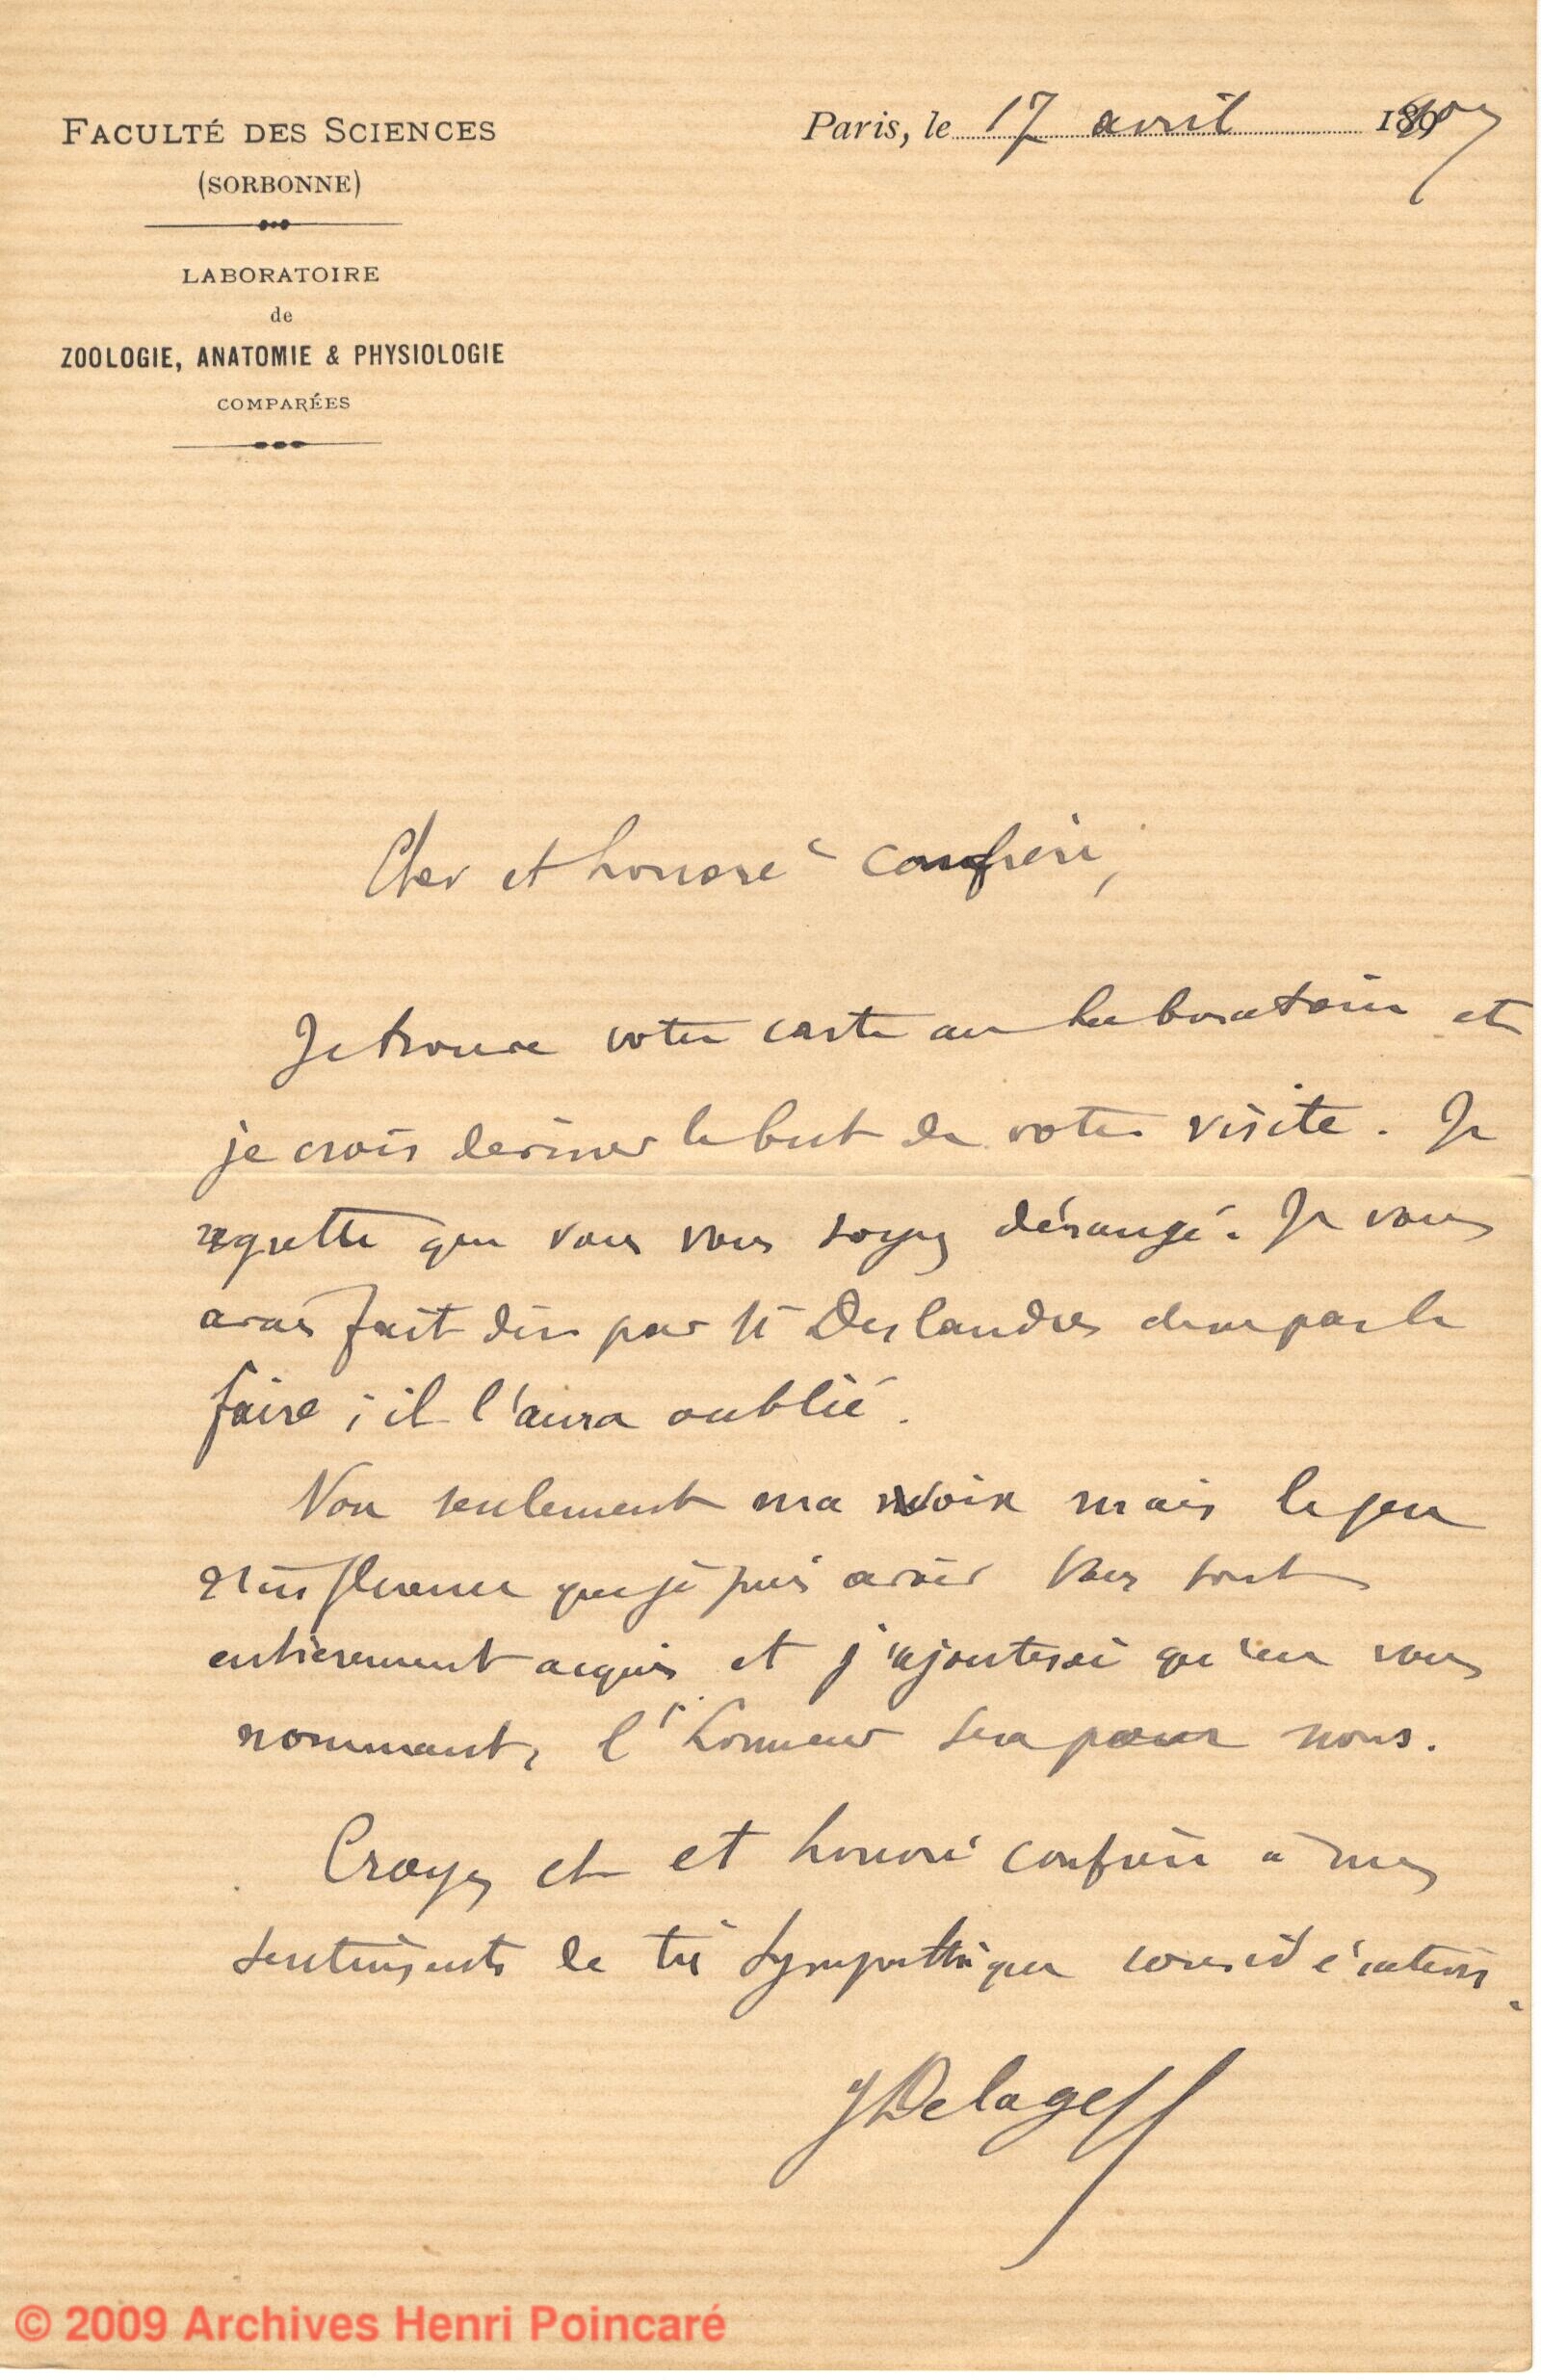 FACULTÉ DES SCIENCES
(SORBONNE)
LABORATOIRE
de
ZOOLOGIE, ANATOMIE & PHYSIOLOGIE
COMPARÉES
Paris, le 17 avril 1907
Cher et honoré confrère,
Je trouve votre carte au laboratoire et
je crois deviner le but de votre visite. Je
regrette que vous vous soyez dérangé. Je vous
avais fait dire par Mr Deslandres de ne pas le
faire ; il l'aura oublié.
Non seulement ma voix mais le peu
d'influence que je puis avoir vous sont
entièrement acquis et j'ajouterai qu'en vous
nommant, l'honneur sera pour nous.
Croyez ch et et honoré confrère à mes
sentiments de très sympathique considération.
Y Delage
© 2009 Archives Henri Poincaré